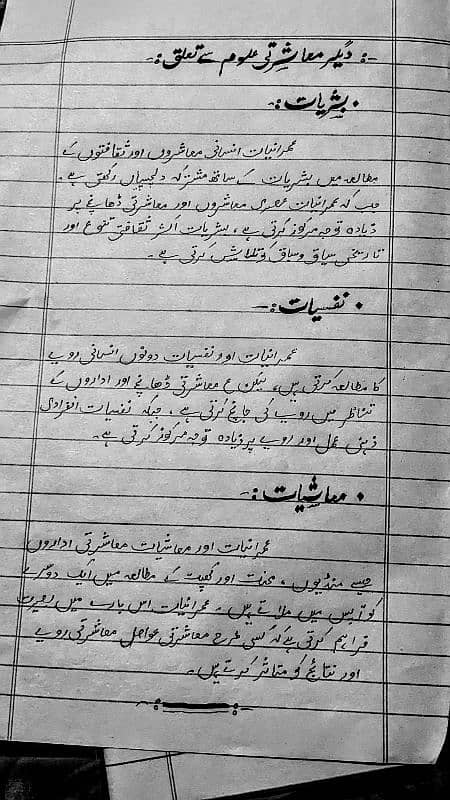 :۔ دیگر معاشرتی علوم سے تعلق :۔
• بشریات :۔
عمرانیات انسانی معاشروں اور ثقافتوں کے
مطالعہ میں بشریات کے ساتھ مشترکہ دلچسپیاں رکھتی ہے۔
جب کہ عمرانیات عصری معاشروں اور معاشرتی ڈھانچے پر
زیادہ توجہ مرکوز کرتی ہے، بشریات اکثر ثقافتی تنوع اور
تاریخی سیاق و سباق کو تلاش کرتی ہے۔
• نفسیات :۔
عمرانیات اور نفسیات دونوں انسانی رویے
کا مطالعہ کرتی ہیں، لیکن ع معاشرتی ڈھانچے اور اداروں کے
تناظر میں رویے کی جانچ کرتی ہے، جبکہ نفسیات انفرادی
ذہنی عمل اور رویے پر زیادہ توجہ مرکوز کرتی ہے۔
• معاشیات :۔
عمرانیات اور معاشیات معاشرتی اداروں
جیسے منڈیوں، محنت اور کھپت کے مطالعہ میں ایک دوسرے
کو آپس میں ملاتے ہیں۔ عمرانیات اس بارے میں بصیرت
فراہم کرتی ہے کہ کس طرح معاشرتی عوامل معاشرتی رویے
اور نتائج کو متاثر کرتے ہیں۔